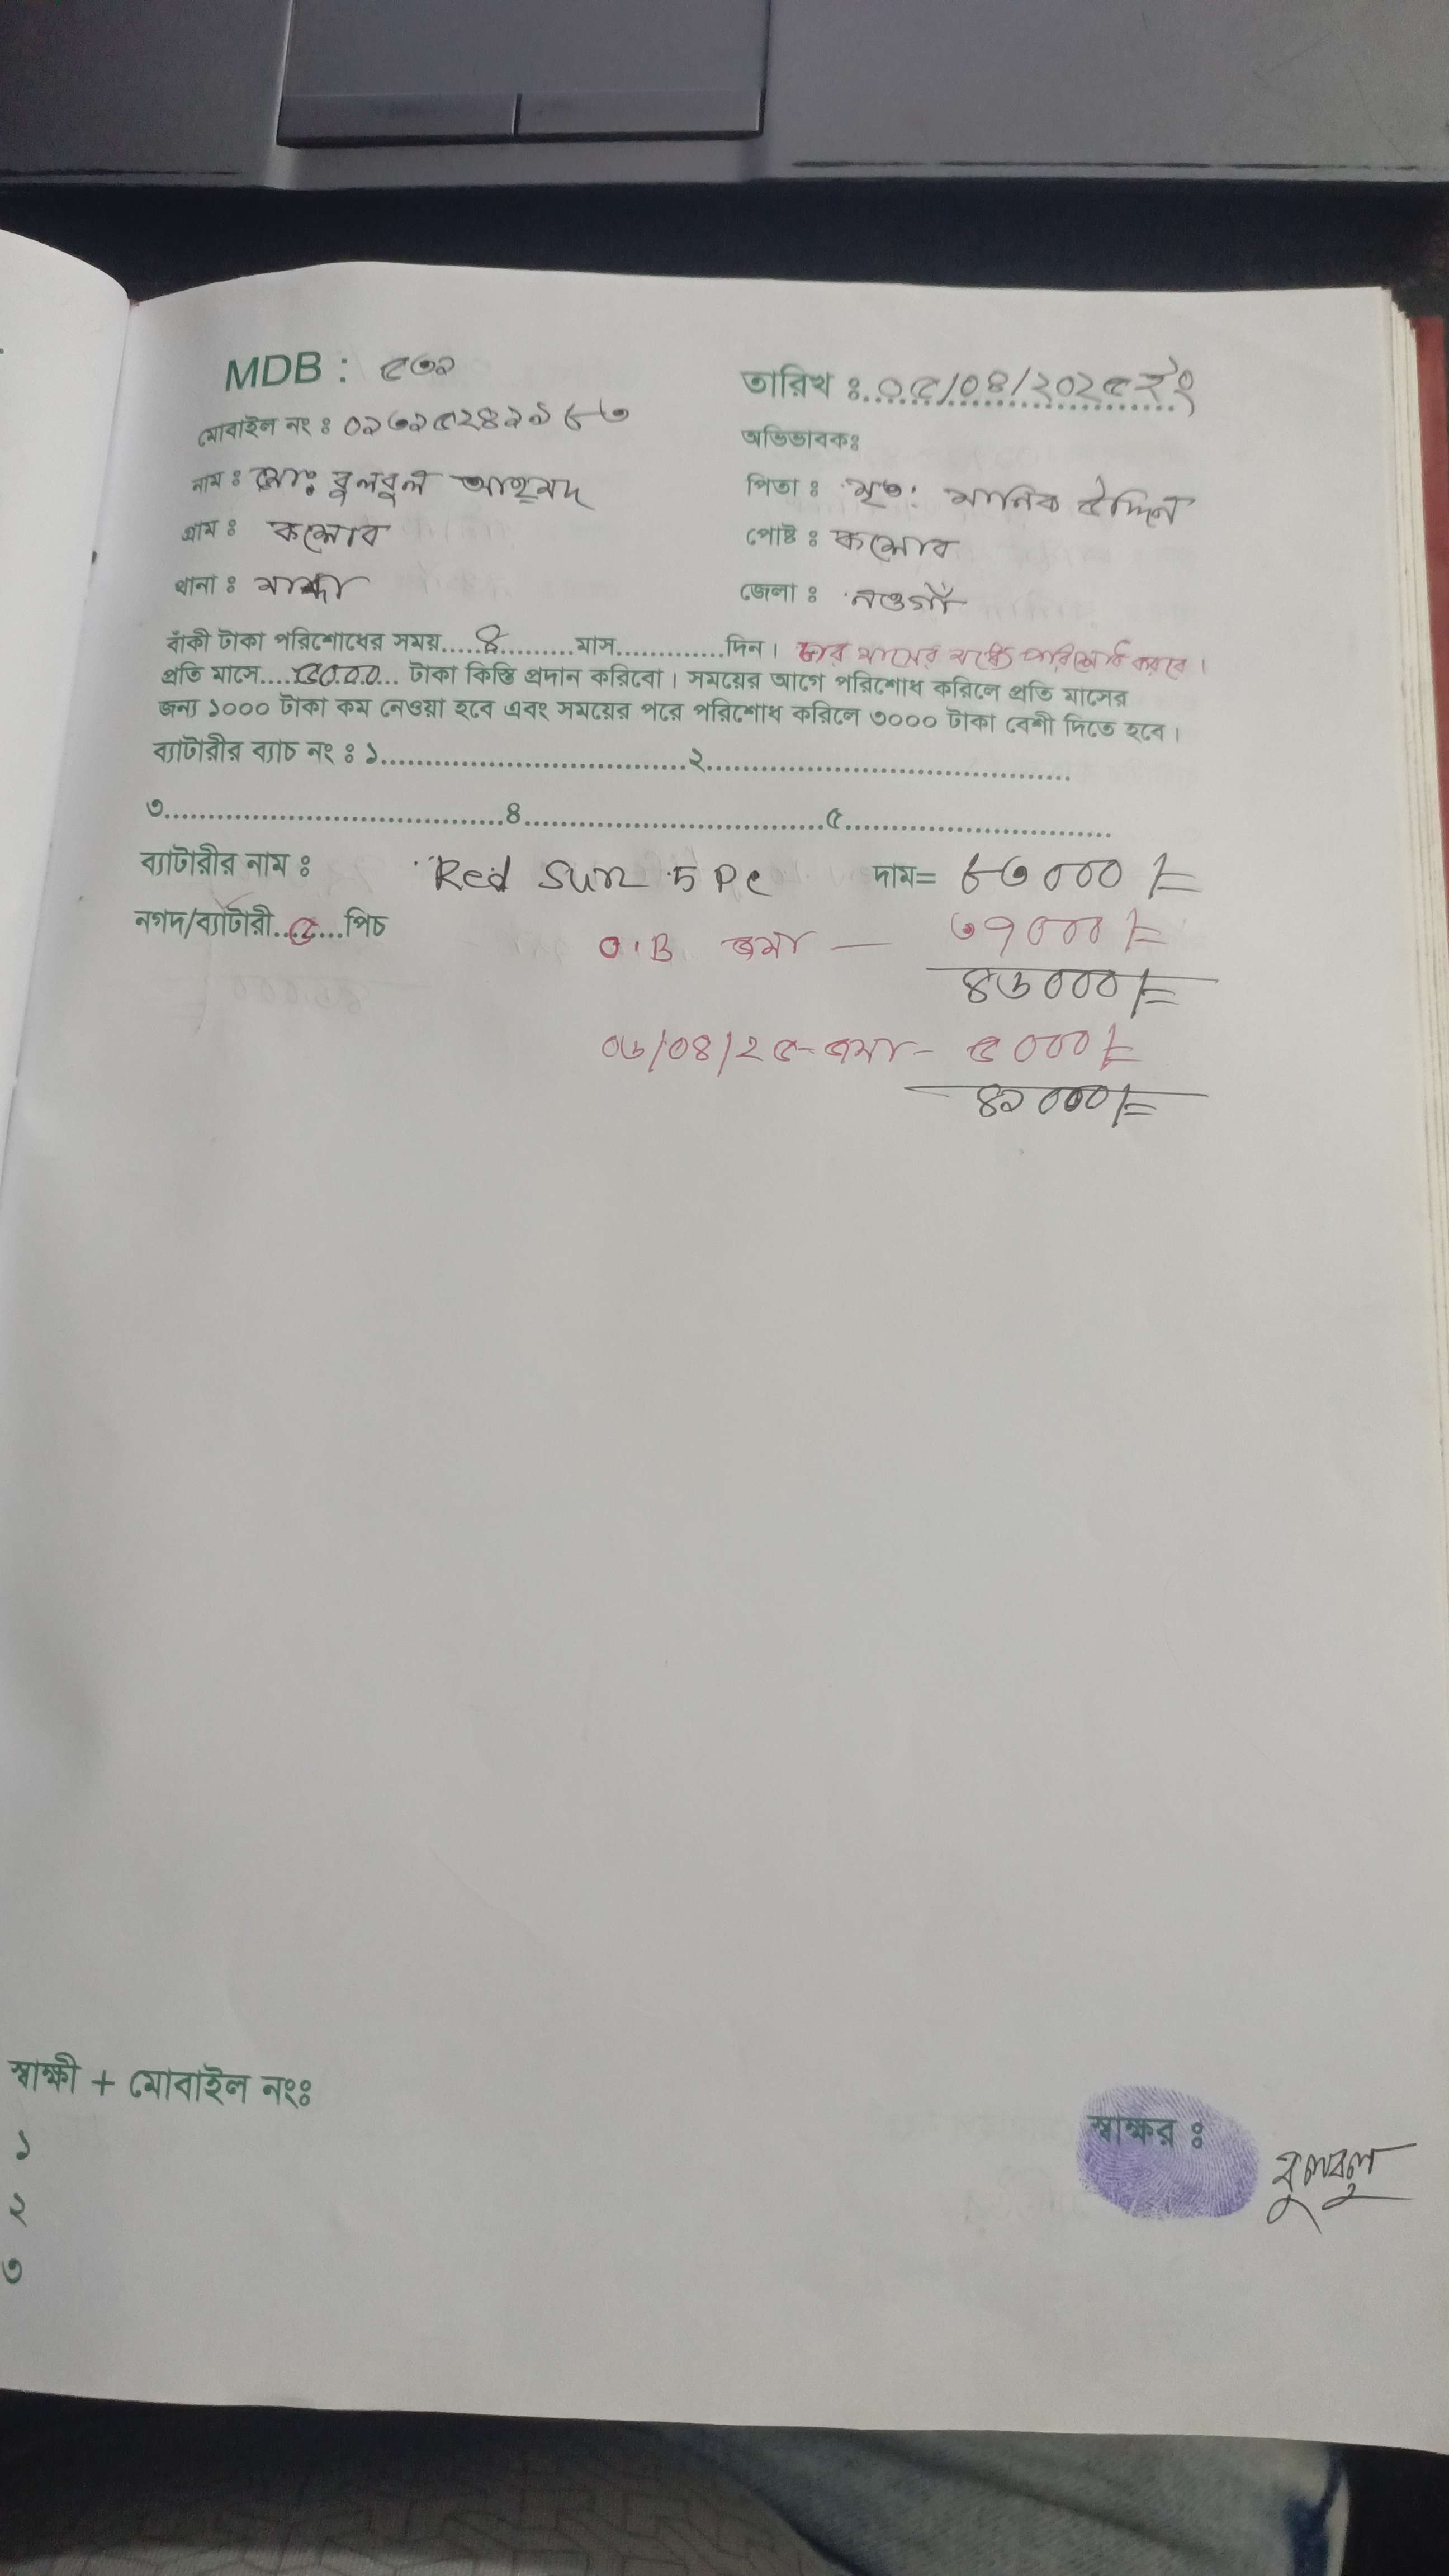 MDB : ৫৩১
তারিখ ঃ ০৫/০৪/২০২৫ ইং
মোবাইল নং ঃ ০১৭১৫২৪১১৮৩
অভিভাবকঃ
নাম ঃ মোঃ বুলবুল আহমদ
পিতা ঃ মৃত: মানিক উদ্দিন
গ্রাম ঃ কশোব
পোষ্ট ঃ কশোব
থানা ঃ মান্দা
জেলা ঃ নওগাঁ
বাঁকী টাকা পরিশোধের সময়.....৪.........মাস.............দিন। চার মাসের মধ্যে পরিশোধ করবে।
প্রতি মাসে.... টাকা কিস্তি প্রদান করিবো। সময়ের আগে পরিশোধ করিলে প্রতি মাসের
জন্য ১০০০ টাকা কম নেওয়া হবে এবং সময়ের পরে পরিশোধ করিলে ৩০০০ টাকা বেশী দিতে হবে।
ব্যাটারীর ব্যাচ নং ঃ ১.................................২.......................................
৩.....................................৪................................৫............................
ব্যাটারীর নাম ঃ Red Sun 5 Pc দাম= ৮৩০০০/=
নগদ/ব্যাটারী..৫...পিচ
O.B জমা — ৩৭০০০/=
৪৬০০০/=
০৬/০৪/২৫- জমা - ৫০০০/=
৪১০০০/=
স্বাক্ষী + মোবাইল নংঃ
১
২
৩
স্বাক্ষর ঃ বুলবুল